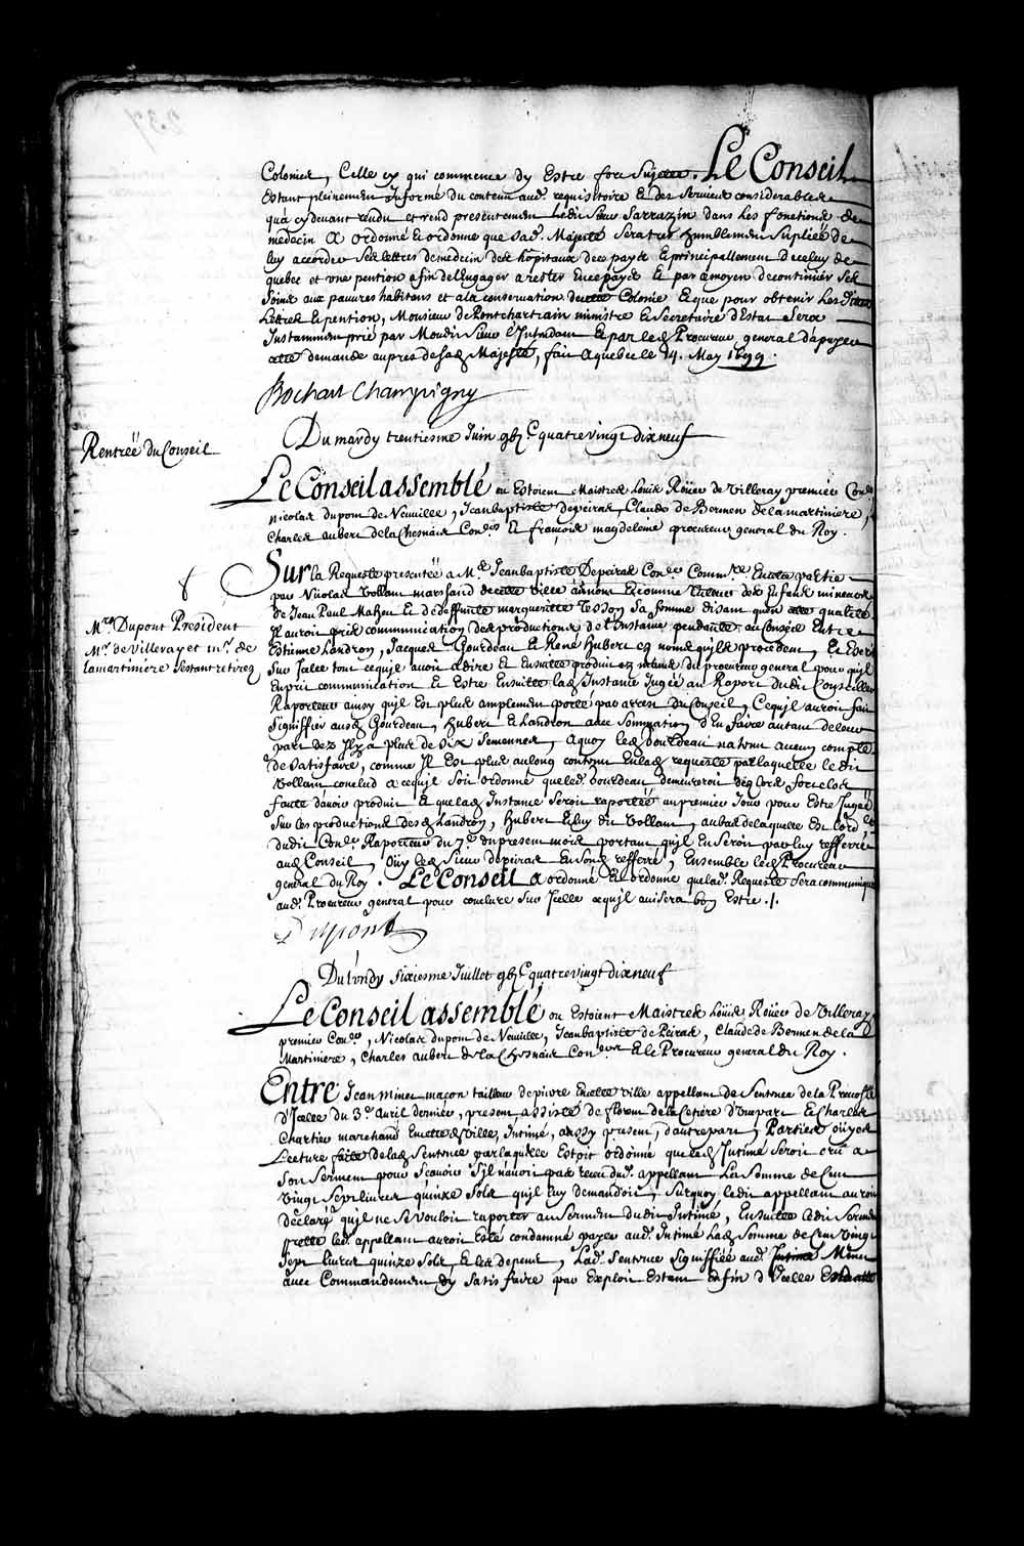 Colonies, Celle cy qui commence dy Estre fort Sujette. Le Conseil
Estant pleinement Informé du contenu aud. requisitoire Et des Services considerables
qu'a cy devant rendu et rend presentement Ledit Sieur Sarrazin dans Les fonctions de
medecin A ordonné Et ordonne que Sad. Majesté Sera tres humblement Supliée de
luy accorder Ses lettres de medecin des hôpitaux de ce pays Et principallement De celuy de
quebec et une pention afin de l'Engager a rester En ce pays Et par ce moyen de continuer Ses
Soins aux pauvres habitans et a la conservation de cette Colonie Et que pour obtenir Lesd.
Lettres Et pention, Monsieur de Pontchartrain ministre Et Secretaire d'Estat Sera
Instamment prié par Mondit Sieur l'Intendant Et par led. Procureur general d'apuyer
cette demande aupres de Sad. Majesté, fait a quebec le 14. May 1699.
Bochart Champigny
Du mardy trentiesme Juin gbjc quatre vingt dix neuf
Rentrée du Conseil
Le Conseil assemblé ou Estoient Maistres Louis Roüer de Villeray premier Conr.
Nicolas dupont de Neuville, Jean baptiste depeiras, Claude de Bermen de la martiniere,
Charles aubert de la Chesnaie Coners Et françois magdeleine procureur general du Roy.
Mre. Dupont President
Mrs. de Villeray et mr. de
la martiniere s'estant retirez
Sur la Requeste presentée a Me. Jean baptiste Depeiras Coner Commre. En cette partie
par Nicolas Vollant marchand de cette ville au nom Et comme tuteur des Enfans mineurs
de Jean Paul Maheu Et de deffuncte marguerite Tesson Sa femme disant qu'en cette qualité
Il auroit pris communication des productions de l'Instance pendante au Conseil Entre
Estienne Landron, Jacques Gourdeau Et René Hubert es noms qu'ils procedent, Et
Sur Icelle tout ce qu'il avoit a dire Et Ensuitte produit es mains du procureur general pour qu'il
En prit communication Et Estre Ensuitte lad. Instance Jugée au Raport dudit Conseiller
Raporteur ainsy qu'il Est plus amplement porté par arrest Du Conseil, Ce qu'il auroit fait
Signiffier ausd. Gourdeau, Hubert Et Landron avec Sommation d'En faire autant de leur
part dez Il y a plus de Six Semaines, a quoy led. Gourdeau na tenu aucun compte
de Satisfaire, comme Il Est plus au long contenu En lad. requeste par laquelle ledit
Vollant conclud a ce qu'il Soit ordonné que led. Gourdeau demeureroit déz lors forclos
faute d'avoir produit Et que lad. Instance Seroit raportée au premier Jour pour Estre Jugée
Sur les productions desd. Landron, Hubert Et luy dit Vollant, au bas de laquelle Est l'ordce.
dudit Coner Raporteur du 7e. du present mois portant qu'il En Seroit par luy refferré
aud. Conseil, Oüy led. Sieur depeiras En Sond. refferré, Ensemble led. Procureur
general du Roy. Le Conseil a ordonné Et ordonne que lad. Requeste Sera communiquée
aud. Procureur general pour conclure Sur Icelle ce qu'il avisera bon Estre ./.
Dupont
Du Lundy Sixiesme Juillet gbjc quatre vingt dix neuf
Le Conseil assemblé ou Estoient Maistres Loüis Roüer de Villeray
premier Coner, Nicolas dupont de Neuville, Jean baptiste de Peiras, Claude de Bermen de la
Martiniere, Charles aubert de la Chesnaie Coners Et le Procureur general du Roy.
Entre Jean Minet maçon tailleur de pierre En cette ville appellant de Sentence de la Prevosté
d'Icelle du 3e. avril dernier, present assisté de florent de la Cetiere d'une part Et Charles
Chartier marchand En cetted. Ville, Intimé, aussy present, d'autre part, Parties oüyes
Lecture faite de lad. Sentence par laquelle Estoit ordonné que led. Intimé Seroit crû a
Son Serment pour Sçavoir S'il n'avoit pas receu dud. appellant La Somme de Cent
Vingt Sept livres quinze Sols qu'il luy demandoit, Surquoy ledit appellant auroit
declaré qu'il ne S'en vouloit raporter au Serment dudit Intimé, Ensuitte dudit Serment
presté led. appellant auroit Esté condamné payer aud. Intimé Lad. Somme de Cent Vingt
Sept livres quinze Sols, Et les depens, Lad. Sentence Signiffiée aud. Minet
avec Commandement d'y Satisfaire par Exploit Estant En fin d'Icelle